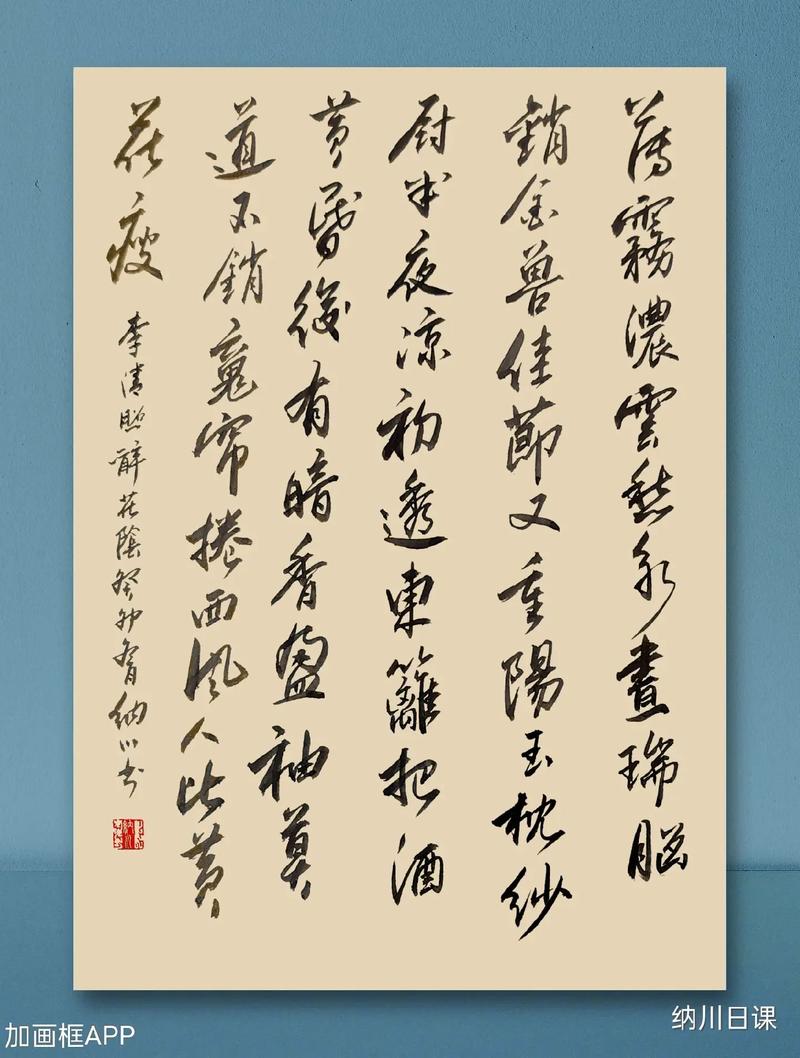 薄霧濃雲愁永晝瑞腦
銷金獸佳節又重陽玉枕紗
厨半夜凉初透東籬把酒
黄昏後有暗香盈袖莫
道不銷魂帘捲西風人比黄
花瘦
李清照醉花陰癸卯育納川書
加画框APP
纳川日课